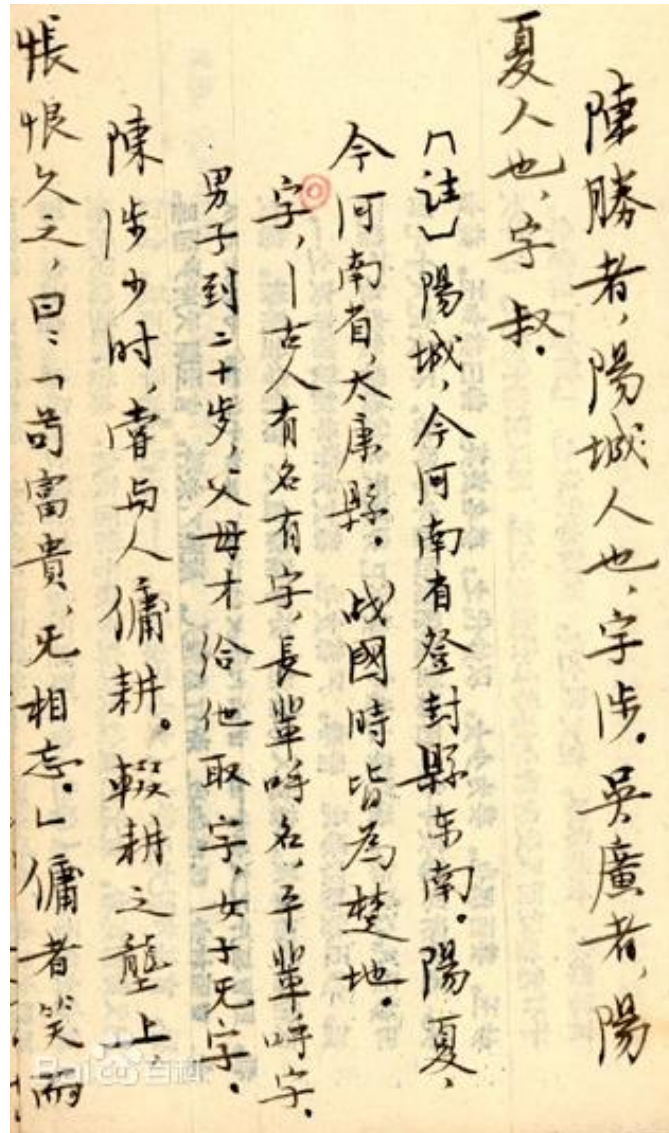 陳勝者，陽城人也，字涉。吳廣者，陽
夏人也，字叔。
【註】陽城，今河南省登封縣东南。陽夏、
今河南省，太康縣。战國時皆為楚地。
字，—古人有名有字，長輩呼名，平輩呼字。
男子到二十岁，父母才给他取字，女子无字。
陳涉少时，嘗与人傭耕。輟耕之壟上，
悵恨久之，曰：「苟富貴，无相忘。」傭者笑而
Baidu百科